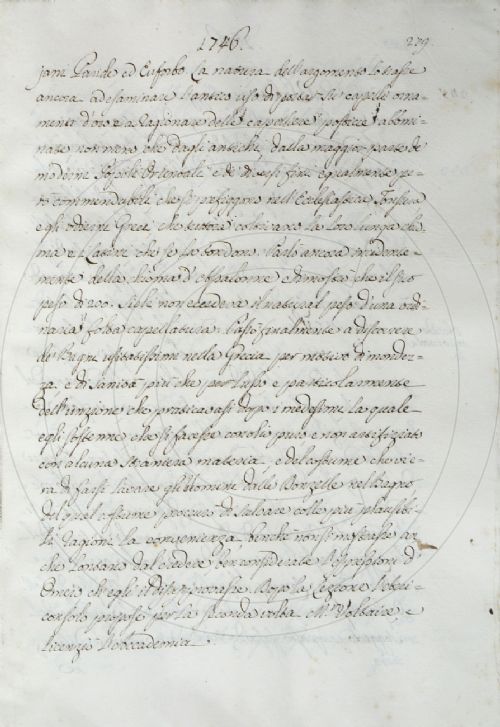 1746.
279.
jani Paride ed Euforbo. La natura dell'argomento lo trasse
ancora ad esaminare l'antico uso di porre su' capelli orna-
menti d'oro e a ragionare delle capigliere posticce abomi-
nate non meno che dagli antichi, dalla maggior parte de'
moderni Popoli Orientali, e de' diversi fini egualmente pe-
rò commendabili che si prefiggono nell'Ecclesiastica Tonsura
egli odierni Greci che tuttora coltivano la loro lunga chio-
ma e i Latini che se la tondono. Parlò ancora erudita-
mente della chioma d'Assalonne e dimostrò che il suo
peso di 200. Sicli non eccedeva il natural peso d'una ordi-
naria folta capellatura. Passò finalmente a discorrere
de' Bagni usitatissimi nella Grecia per motivo di mondez-
za e di sanità più che per lusso e particolarmente
dell'unzione che praticavasi dopo i medesimi la quale
egli sostenne che si facesse con olio puro e non artifiziato
con alcuna straniera materia, e del costume che vi e-
ra di farsi lavare gli uomini dalle Donzelle nel bagno
del qual costume procurò di salvare colle più plausibi-
li ragioni la convenienza, benchè non si mostrasse an-
che lontano dal credere ben considerate l'espressioni d'
Omero ch'egli il disapprovasse. Dopo la Lezione l'Arci-
consolo propose per la seconda volta Mr. Voltaire, e
licenziò l'Accademia.